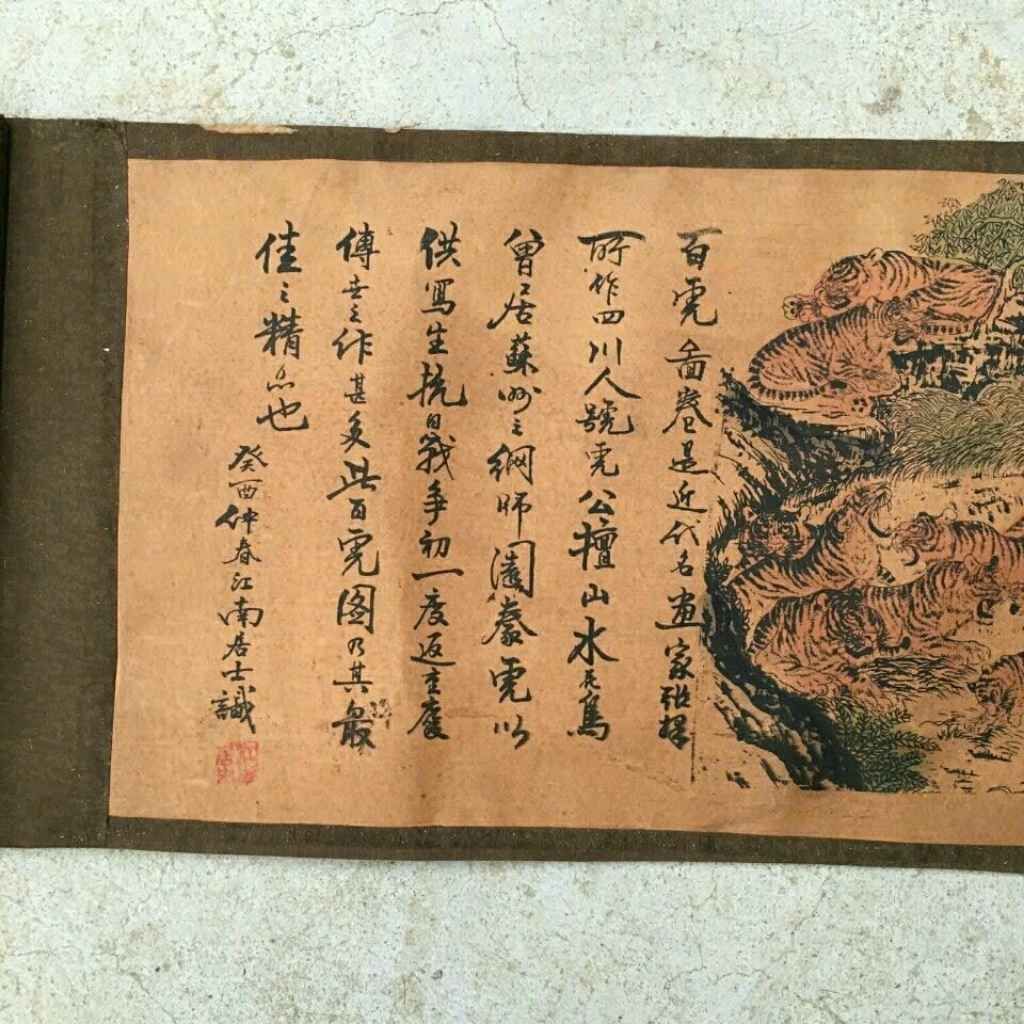 百虎畫卷是近代名画家張擇
所作四川人號虎公擅山水花鳥
曾居蘇州之網師園豢虎以
供寫生抗日戰爭初一度返重慶
傳世之作甚多此百虎图乃其最
佳之精品也
癸酉仲春江南居士識